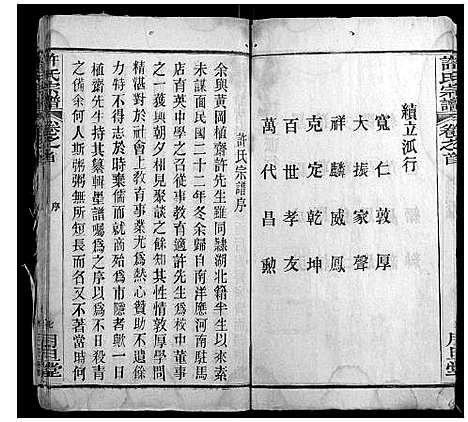 許氏宗譜 卷之首
續立派行
寬仁敦厚
大振家聲
祥麟威鳳
克定乾坤
百世孝友
萬代昌勳
月旦堂
許氏宗譜序
余與黃岡植齋許先生雖同隸湖北籍半生以來素
未謀面民國二十二年冬余歸自南洋應河南駐馬
店育英中學之召從事教育適許先生爲校中董事
之一獲與朝夕相見聚談之餘知其性情敦厚學問
精湛對於社會上教育事業尤爲熱心贊助不遺餘
力特不得志於時棄儒而就商殆爲市隱者歟一日
植齋先生持其纂輯星譜囑爲之序以爲不日殺青
之備余何人斯粥粥無所短長而名又不著當時何
許氏宗譜 卷之首
序
月旦堂